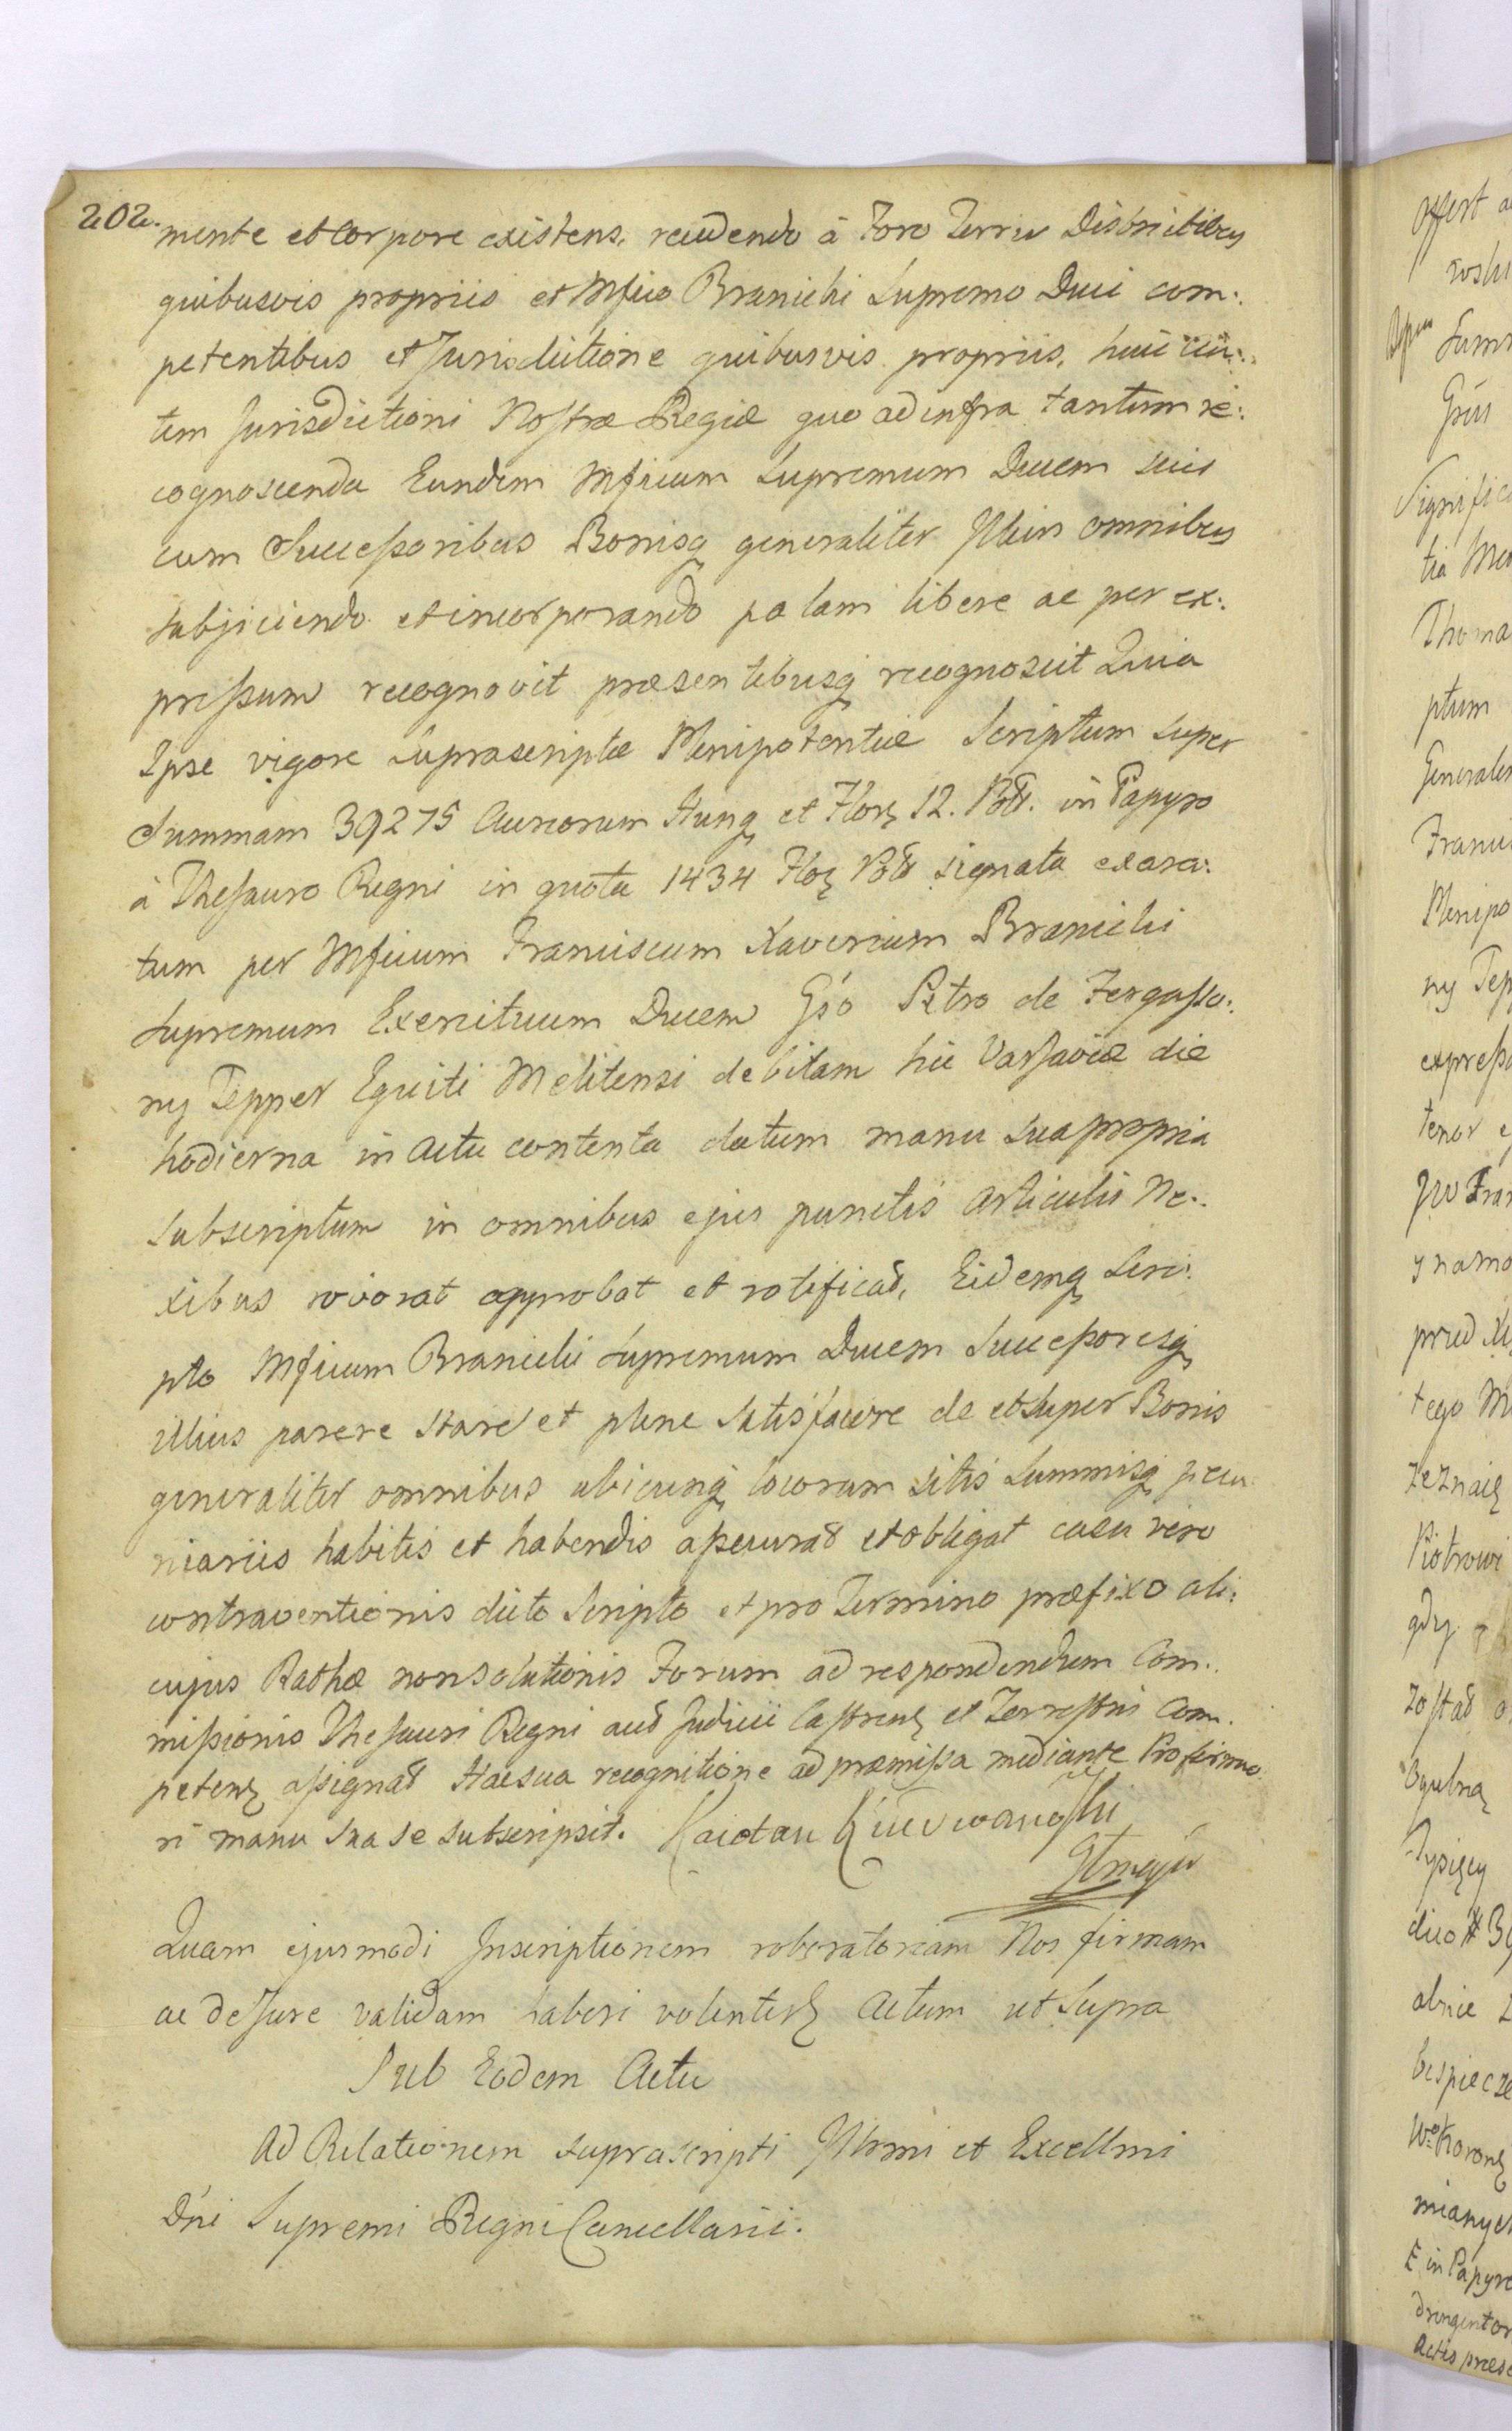 202.
mente et Corpore existens, recedendo à Foro Terris Districtibus
quibusvis propriis et Mfico Branicki Supremo Duci com:
petentibus et Jurisdictione quibusvis propriis, huic au:
tem Jurisdictioni Nostræ Regiæ quo ad infra tantum re:
cognoscenda Eundem Mficum Supremum Ducem suis
cum Successoribus Bonisq generaliter Illius omnibus
subjiciendo et incorporando palam libere ac per ex:
pressum recognovit præsentibusq recognoscit Quia
Ipse vigore suprascriptæ Plenipotentiæ Scriptum super
Summam 39275 Aureorum Hung et Flor 12. Poll. in Papyro
à Thesauro Regni in quota 1434 Flor Poll signata exara:
tum per Mficum Franciscum Xaverium Branicki
Supremum Exercituum Ducem Gso Petro de Fergusso:
ny Tepper Equiti Melitensi debitam hic Varsaviæ die
hodierna in Actu contenta datum manu sua propria
subscriptum in omnibus ejus punctis Articulis Ne:
xibus roborat approbat et ratificat, Eidemq Scri:
pto Mficum Branicki Supremum Ducem Successoresq
illius parere stare et plene satisfacere de et super Bonis
generaliter omnibus ubicunq locorum sitis Summisq pecu
niariis habitis et habendis assecurat et obligat casu vero
contraventionis dicto Scripto et pro Termino præfixo ali:
cujus Rathæ non solutionis Forum ad respondendum Com:
missionis Thesauri Regni aut Judicii Castrens et Terrestris Com:
petens assignat Hac sua recognitione ad præmissa mediante Pro firmio:
ri manu sua se subscripsit. Kaietan
Quam ejusmodi Inscriptionem roboratoriam Nos firmam
ac de Jure validam haberi volentes Actum ut Supra
Sub Eodem Actu
Ad Relationem suprascripti Illmi et Excellmi
Dni Supremi Regni Cancellarii.
offert
Sum
Signific
tia
Thoma
ptum
General
Franci
Plenipo
ny Tep
express
tenor
tego
zeznaię
Piotrowi
gdy
zostać
Tysięcy
bespiecze
mianych
in Papyro
Actis præse